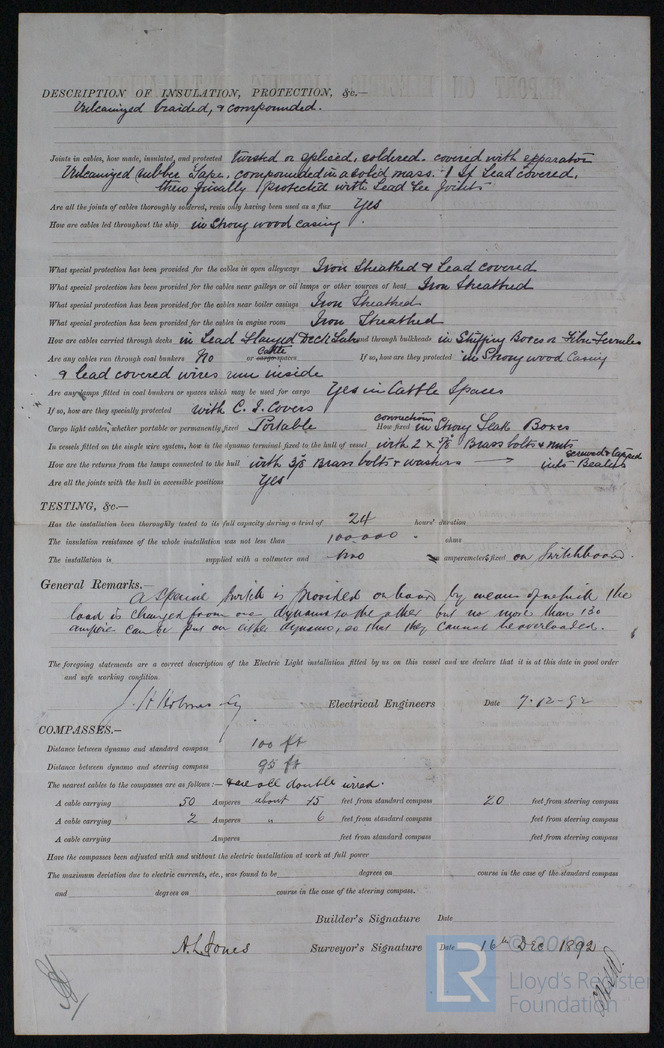 DESCRIPTION OF INSULATION, PROTECTION, &c.—
Vulcanized braided, & compounded.
Joints in cables, how made, insulated, and protected twisted or spliced, soldered. covered with
Vulcanized rubber Tape, compounded in a solid mass. If Lead covered,
then finally protected with Lead Tee Joints
Are all the joints of cables thoroughly soldered, resin only having been used as a flux Yes
How are cables led throughout the ship in Strong wood casing.
What special protection has been provided for the cables in open alleyways Iron Sheathed & Lead covered
What special protection has been provided for the cables near galleys or oil lamps or other sources of heat Iron Sheathed
What special protection has been provided for the cables near boiler casings Iron Sheathed
What special protection has been provided for the cables in engine room Iron Sheathed
How are cables carried through decks in Lead Flanged Deck Tubes and through bulkheads in Stuffing Boxes or Fibre Ferrules
Are any cables run through coal bunkers No or cargo Cattle spaces If so, how are they protected in Strong wood Casing
& lead covered wires run inside
Are any lamps fitted in coal bunkers or spaces which may be used for cargo Yes in Cattle Spaces
If so, how are they specially protected with C. I. Covers
Cargo light cables, whether portable or permanently fixed Portable How fixed connections in Strong Teak Boxes
In vessels fitted on the single wire system, how is the dynamo terminal fixed to the hull of vessel with 2 x 7/8 Brass bolts & nuts
How are the returns from the lamps connected to the hull with 3/8 Brass bolts & washers screwed & tapped into
Are all the joints with the hull in accessible positions Yes
TESTING, &c.—
Has the installation been thoroughly tested to its full capacity during a trial of 24 hours' duration
The insulation resistance of the whole installation was not less than 100,000 ohms
The installation is supplied with a voltmeter and two amperemeters fixed on Switchboard.
General Remarks.—
A special Switch is provided on board by means of which the
load is changed from one dynamo to the other but no more than 130
amperes can be put on either dynamo, so that they cannot be overloaded.
The foregoing statements are a correct description of the Electric Light installation fitted by us on this vessel and we declare that it is at this date in good order
and safe working condition.
J. H. Holmes Electrical Engineers Date 7-12-92
COMPASSES.—
Distance between dynamo and standard compass 100 ft
Distance between dynamo and steering compass 95 ft
The nearest cables to the compasses are as follows:— & are all double wired.
A cable carrying 50 Amperes about 15 feet from standard compass 20 feet from steering compass
A cable carrying 2 Amperes " 6 feet from standard compass feet from steering compass
A cable carrying Amperes feet from standard compass feet from steering compass
Have the compasses been adjusted with and without the electric installation at work at full power
The maximum deviation due to electric currents, etc., was found to be degrees on course in the case of the standard compass
and degrees on course in the case of the steering compass.
Builder's Signature Date
A. L. Jones Surveyor's Signature Date 16th Dec 1892
LR
Lloyd's Register
Foundation